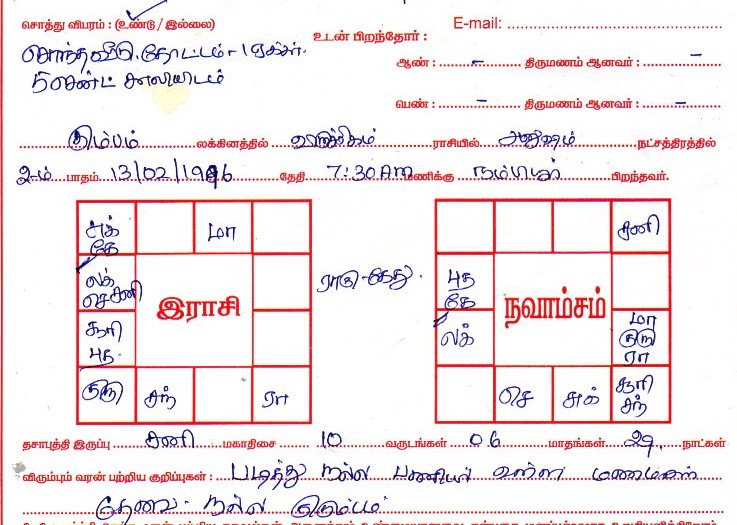 சொத்து விபரம் : (உண்டு / இல்லை)
E-mail:
சொந்தவீடு. தோட்டம் - 1 ஏக்கர்.
உடன் பிறந்தோர் :
5 சென்ட் காலியிடம்
ஆண் : – திருமணம் ஆனவர் : –
பெண் : – திருமணம் ஆனவர் : –
கும்பம் லக்கினத்தில் விருச்சிகம் ராசியில் அனுஷம் நட்சத்திரத்தில்
2-ம் பாதம் 13/02/1996 தேதி 7:30 AM மணிக்கு நம்பியூர் பிறந்தவர்.
சுக் கே
மா
லக் செ சனி
இராசி
சூரி புத
குரு
சந்
ரா
ராகு-கேது.
சனி
புத கே
நவாம்சம்
லக்
மா குரு ரா
செ
சுக்
சூரி சந்
தசாபுத்தி இருப்பு சனி மகாதிசை 10 வருடங்கள் 06 மாதங்கள் 29 நாட்கள்
விரும்பும் வரன் பற்றிய குறிப்புகள் : படித்து நல்ல பணியில் உள்ள மணமகன்
தேவை. நல்ல குடும்பம்